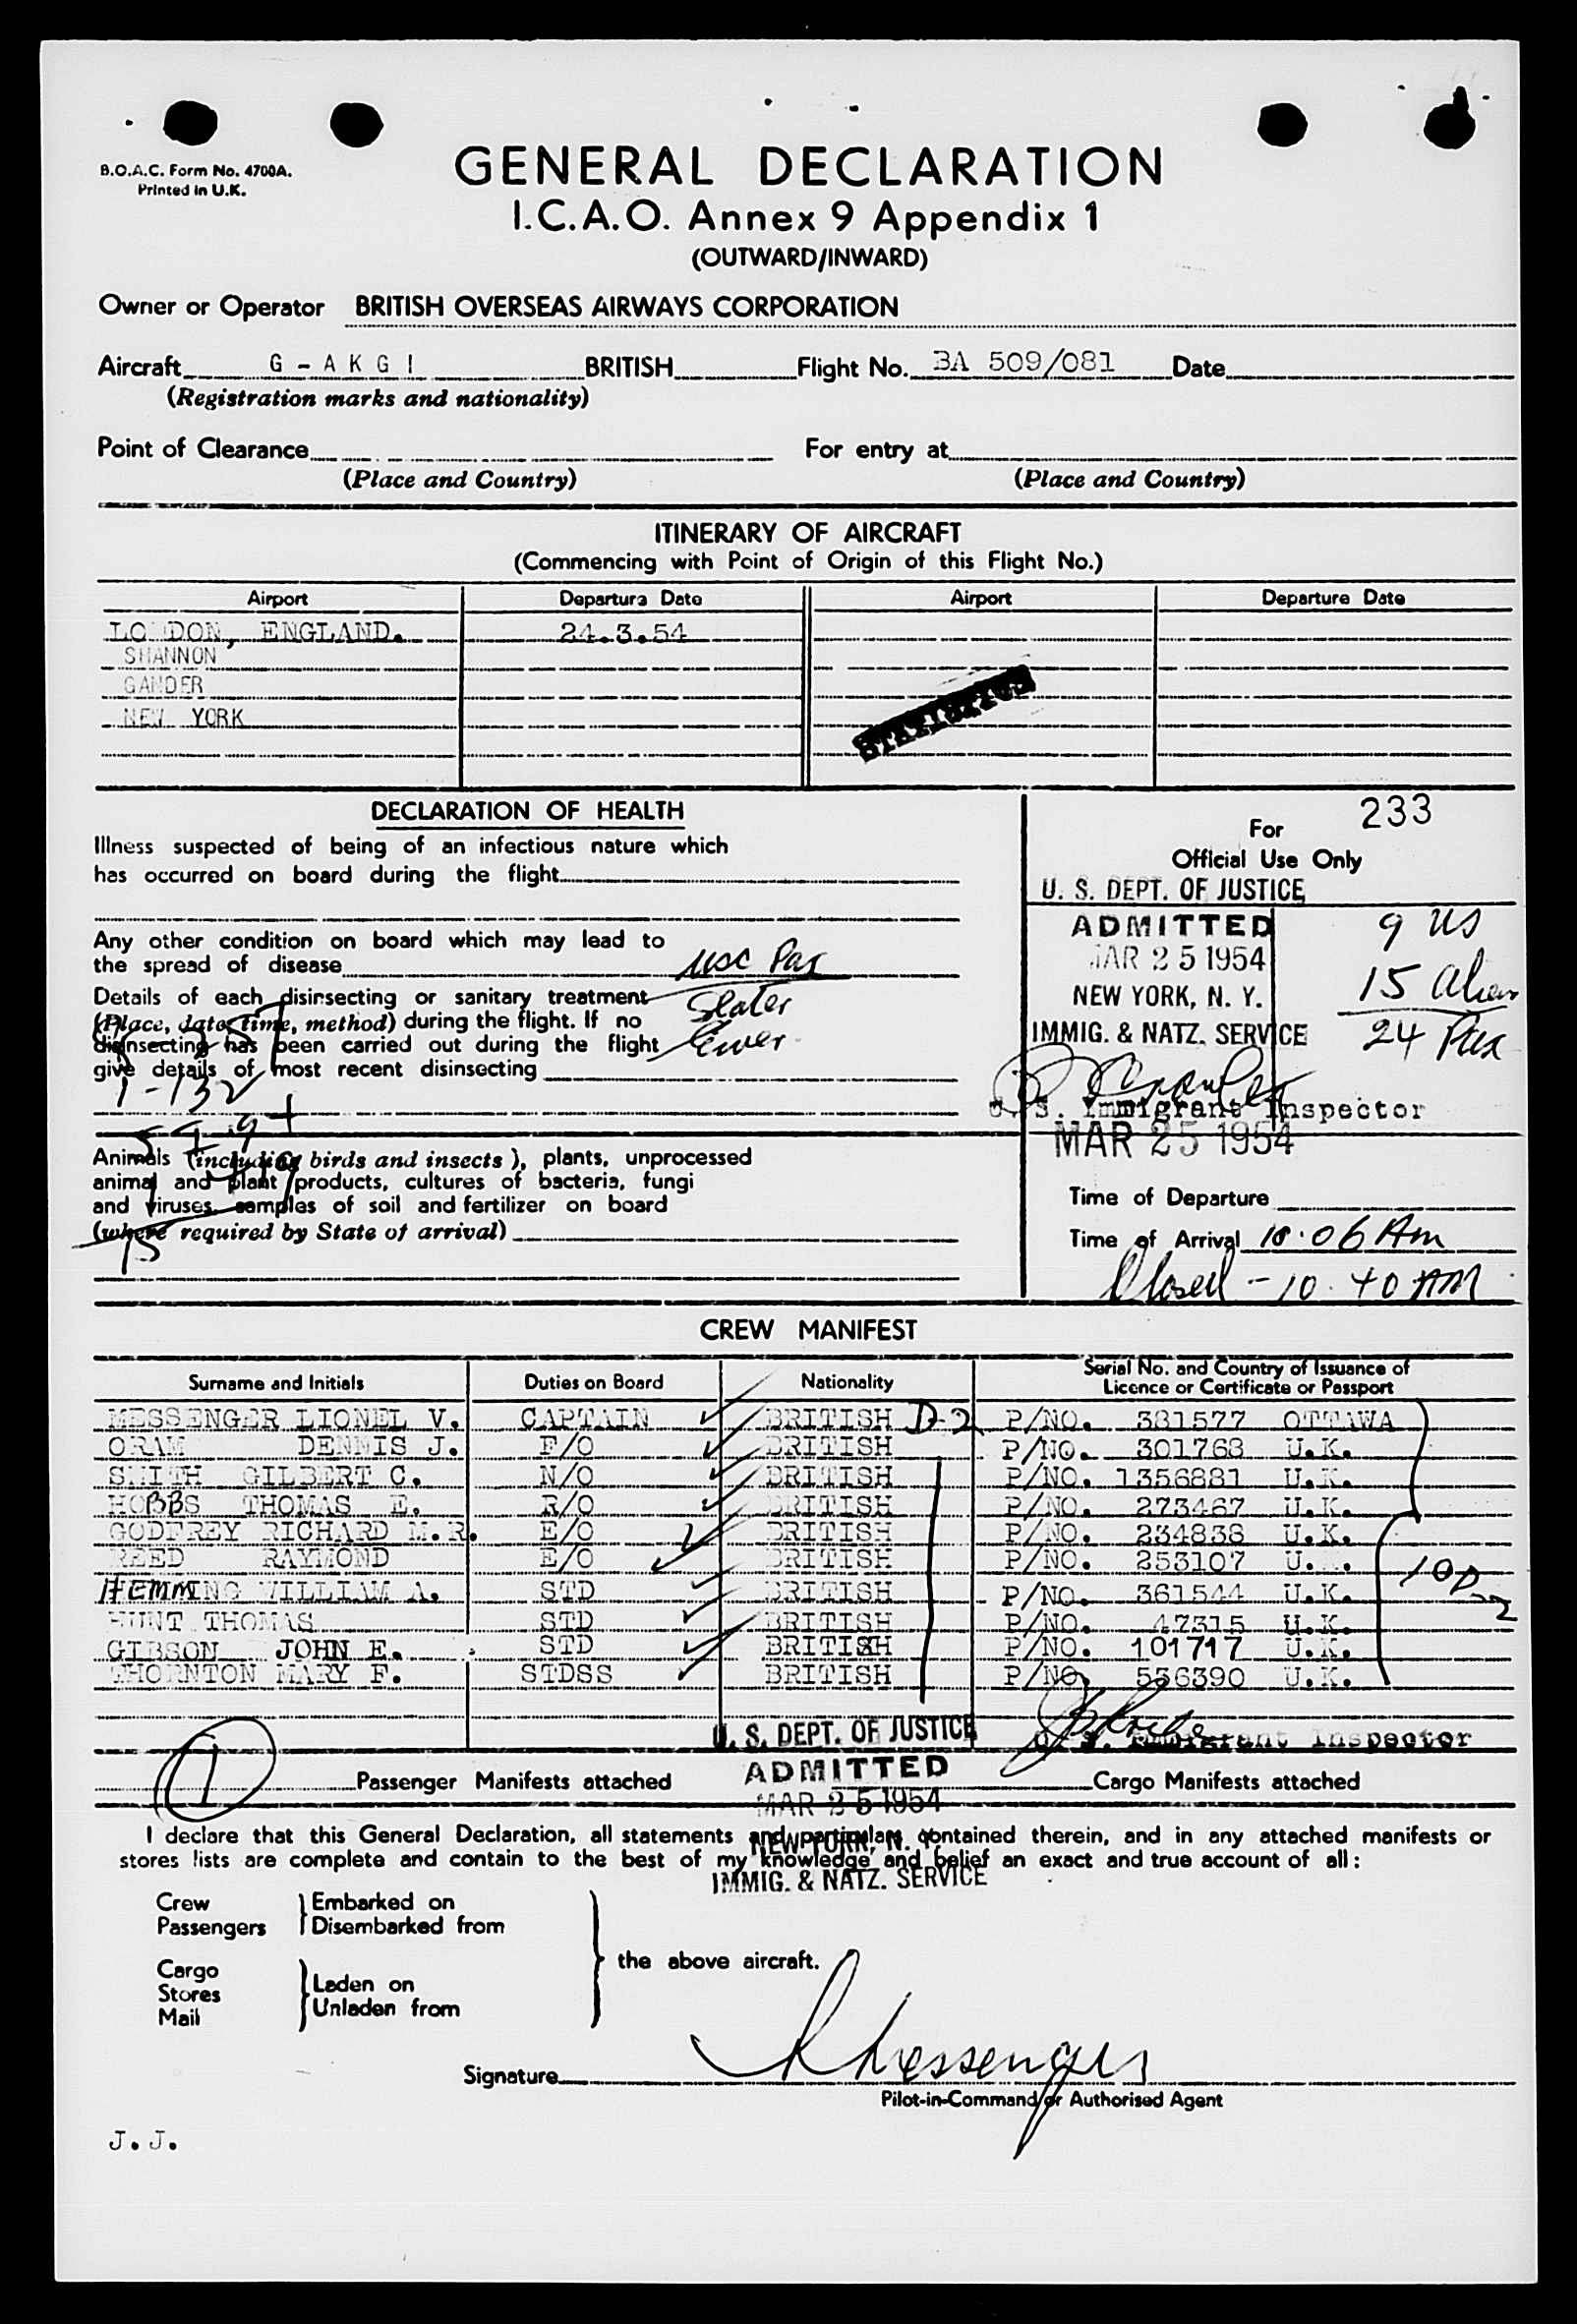 B.O.A.C. Form No. 4700A.
Printed in U.K.
GENERAL DECLARATION
I.C.A.O. Annex 9 Appendix 1
(OUTWARD/INWARD)
Owner or Operator BRITISH OVERSEAS AIRWAYS CORPORATION
Aircraft G - A K G I BRITISH Flight No. BA 509/081 Date
(Registration marks and nationality)
Point of Clearance For entry at
(Place and Country) (Place and Country)
ITINERARY OF AIRCRAFT
(Commencing with Point of Origin of this Flight No.)
Airport Departure Date Airport Departure Date
LONDON, ENGLAND. 24.3.54
SHANNON
GANDER
NEW YORK
STATISTICS
DECLARATION OF HEALTH
Illness suspected of being of an infectious nature which
has occurred on board during the flight
Any other condition on board which may lead to
the spread of disease
Details of each disinsecting or sanitary treatment
(Place, date, time, method) during the flight. If no
disinsecting has been carried out during the flight
give details of most recent disinsecting
Slater
1-132
Animals (including birds and insects), plants, unprocessed
animal and plant products, cultures of bacteria, fungi
and viruses, samples of soil and fertilizer on board
(where required by State of arrival)
15
233
For
Official Use Only
U. S. DEPT. OF JUSTICE
ADMITTED 9 US
MAR 25 1954 15 Alien
NEW YORK, N. Y.
IMMIG. & NATZ. SERVICE 24 Pax
U. S. Immigrant Inspector
MAR 25 1954
Time of Departure
Time of Arrival 10:06 Am
Closed - 10.40 AM
CREW MANIFEST
Surname and Initials Duties on Board Nationality Serial No. and Country of Issuance of
Licence or Certificate or Passport
MESSENGER LIONEL V. CAPTAIN BRITISH D-2 P/NO. 381577 OTTAWA
ORAM DENNIS J. F/O BRITISH P/NO. 301768 U.K.
SMITH GILBERT C. N/O BRITISH P/NO. 1356881 U.K.
HOBBS THOMAS E. R/O BRITISH P/NO. 273467 U.K.
GODFREY RICHARD M.R. E/O BRITISH P/NO. 234838 U.K.
REED RAYMOND E/O BRITISH P/NO. 253107 U.K.
HEMMING WILLIAM A. STD BRITISH P/NO. 361544 U.K.
10 D-2
HUNT THOMAS STD BRITISH P/NO. 47315 U.K.
GIBSON JOHN E. STD BRITISH P/NO. 101717 U.K.
THORNTON MARY F. STDSS BRITISH P/NO. 536390 U.K.
U. S. DEPT. OF JUSTICE U. S. Immigrant Inspector
ADMITTED
1 Passenger Manifests attached Cargo Manifests attached
MAR 25 1954
I declare that this General Declaration, all statements and particulars contained therein, and in any attached manifests or
NEW YORK, N. Y.
stores lists are complete and contain to the best of my knowledge and belief an exact and true account of all:
IMMIG. & NATZ. SERVICE
Crew Embarked on
Passengers Disembarked from
the above aircraft.
Cargo
Stores Laden on
Mail Unladen from
Signature L Messenger
Pilot-in-Command or Authorised Agent
J.J.